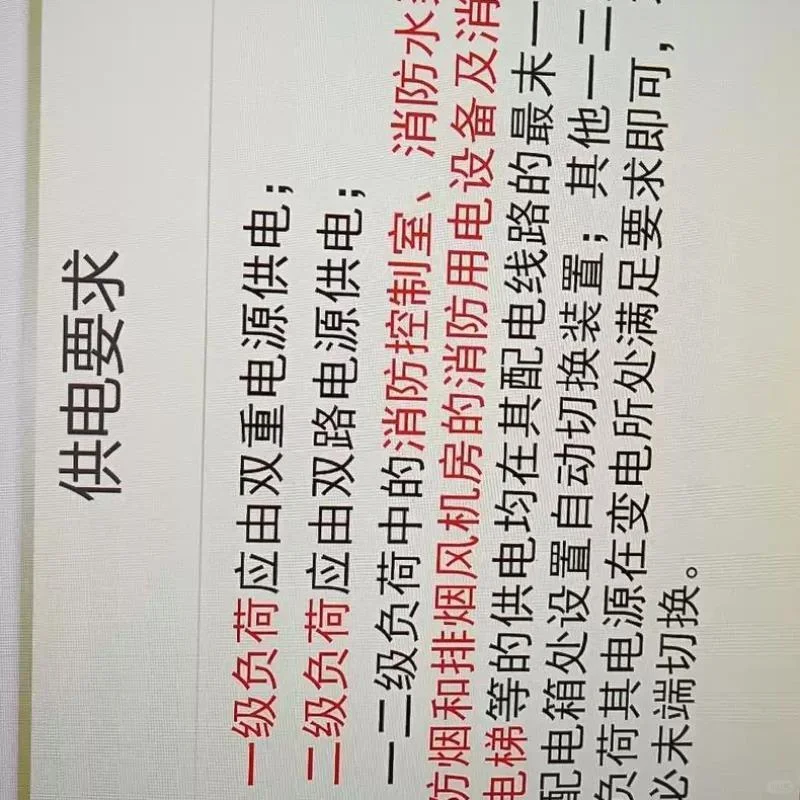 供电要求
一级负荷应由双重电源供电；
二级负荷应由双路电源供电；
一二级负荷中的消防控制室、消防水
防烟和排烟风机房的消防用电设备及消
电梯等的供电均在其配电线路的最末一
配电箱处设置自动切换装置；其他一二
负荷其电源在变电所处满足要求即可，
必末端切换。